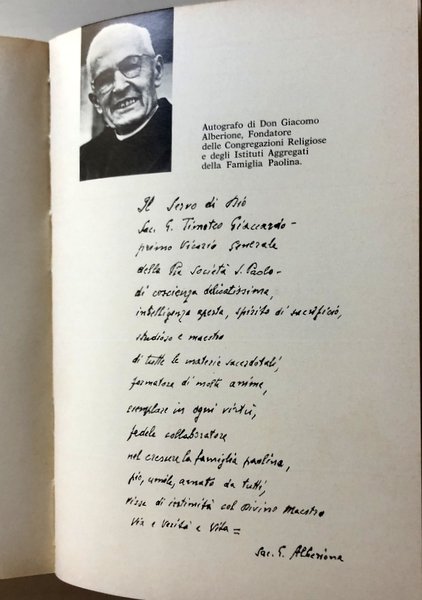 Autografo di Don Giacomo
Alberione, Fondatore
delle Congregazioni Religiose
e degli Istituti Aggregati
della Famiglia Paolina.
Il Servo di Dio
Sac. G. Timoteo Giaccardo -
primo Vicario Generale
della Pia Società S. Paolo -
di coscienza delicatissima,
intelligenza aperta, spirito di sacrificio,
studioso e maestro
di tutte le materie sacerdotali,
formatore di molte anime,
esemplare in ogni virtù,
fedele collaboratore
nel crescere la famiglia paolina,
pio, umile, amato da tutti,
visse di intimità col Divino Maestro
Via e Verità e Vita =
Sac. G. Alberione